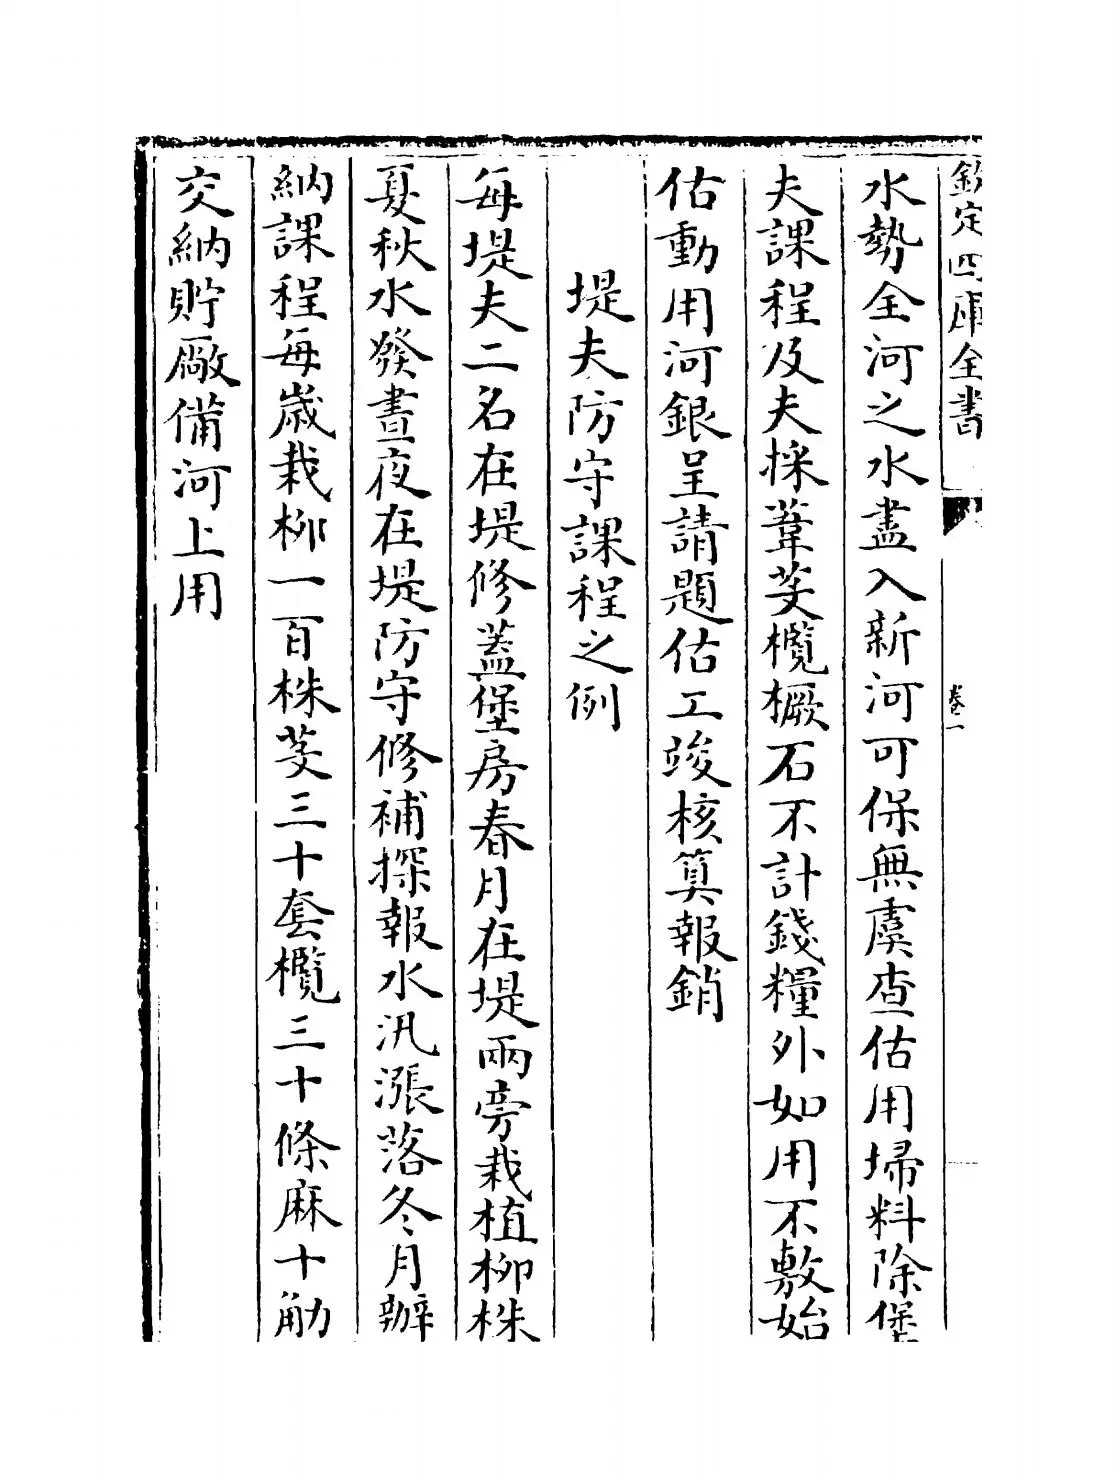 欽定四庫全書
卷一
水勢全河之水盡入新河可保無虞查估用埽料除堡
夫課程及夫採葦茭欖橛石不計錢糧外如用不敷始
估動用河銀呈請題估工竣核算報銷
堤夫防守課程之例
每堤夫二名在堤修蓋堡房春月在堤兩旁栽植柳株
夏秋水發晝夜在堤防守修補探報水汛漲落冬月辦
納課程每歲栽柳一百株茭三十套欖三十條麻十觔
交納貯廠備河上用